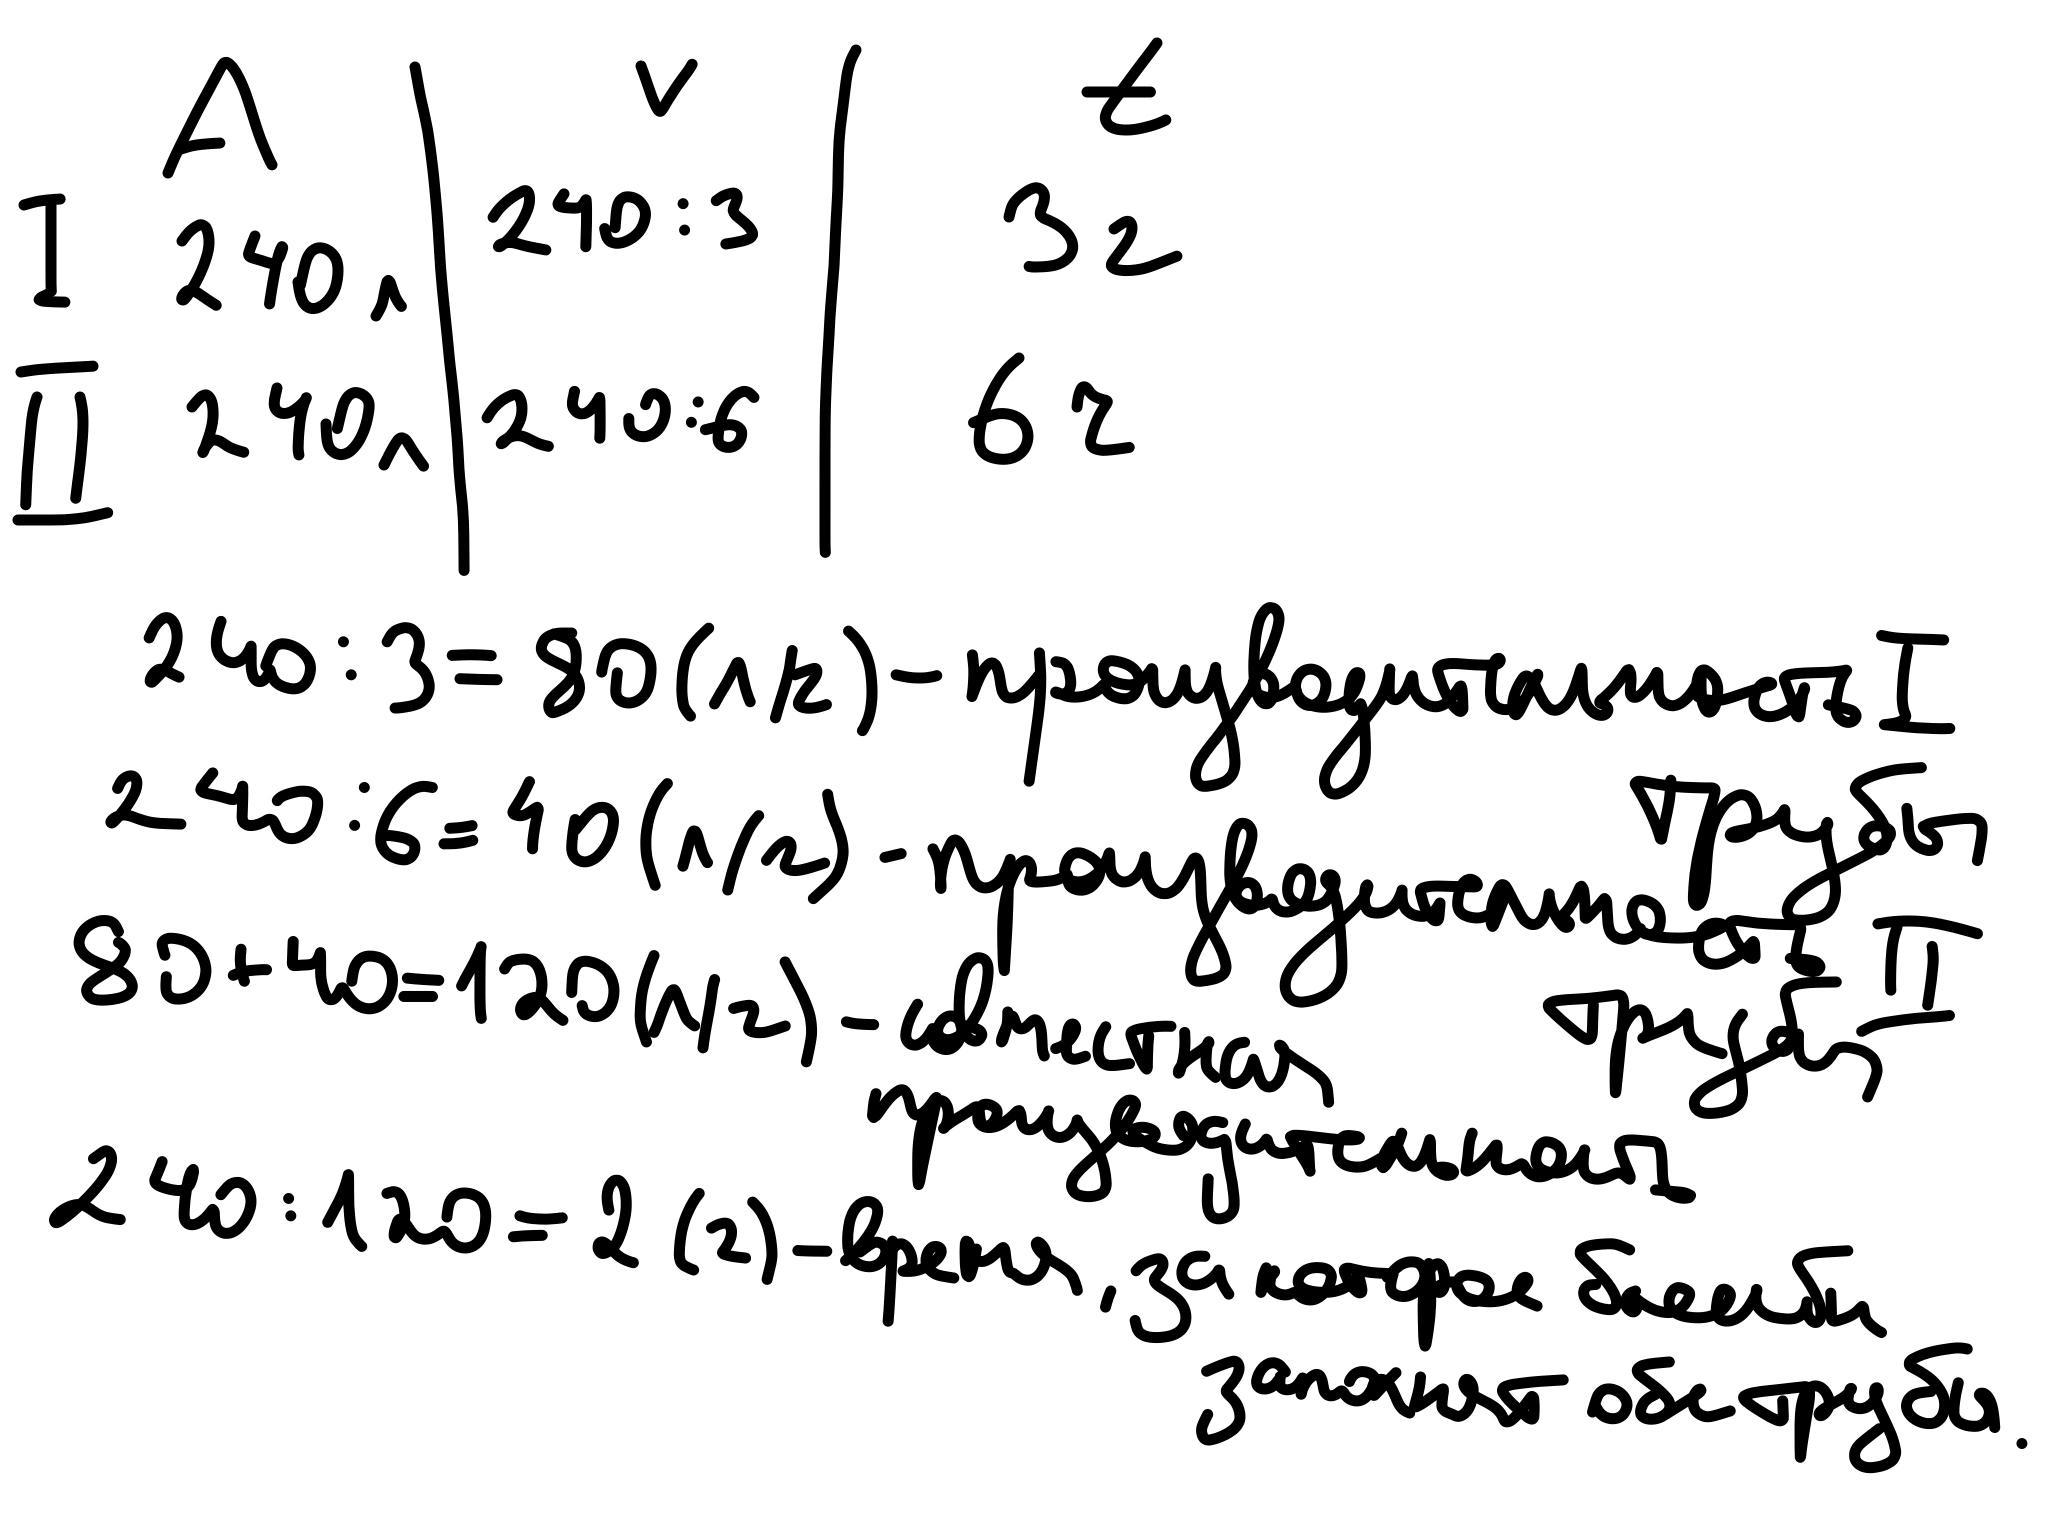 A v t
I 240 л 240:3 3 ч
II 240 л 240:6 6 ч
240:3=80(л/ч) - производительность I
трубы
240:6=40(л/ч) - производительность II
трубы
80+40=120(л/ч) - совместная
производительность
240:120=2 (ч) - время, за которое бассейн
заполнят обе трубы.